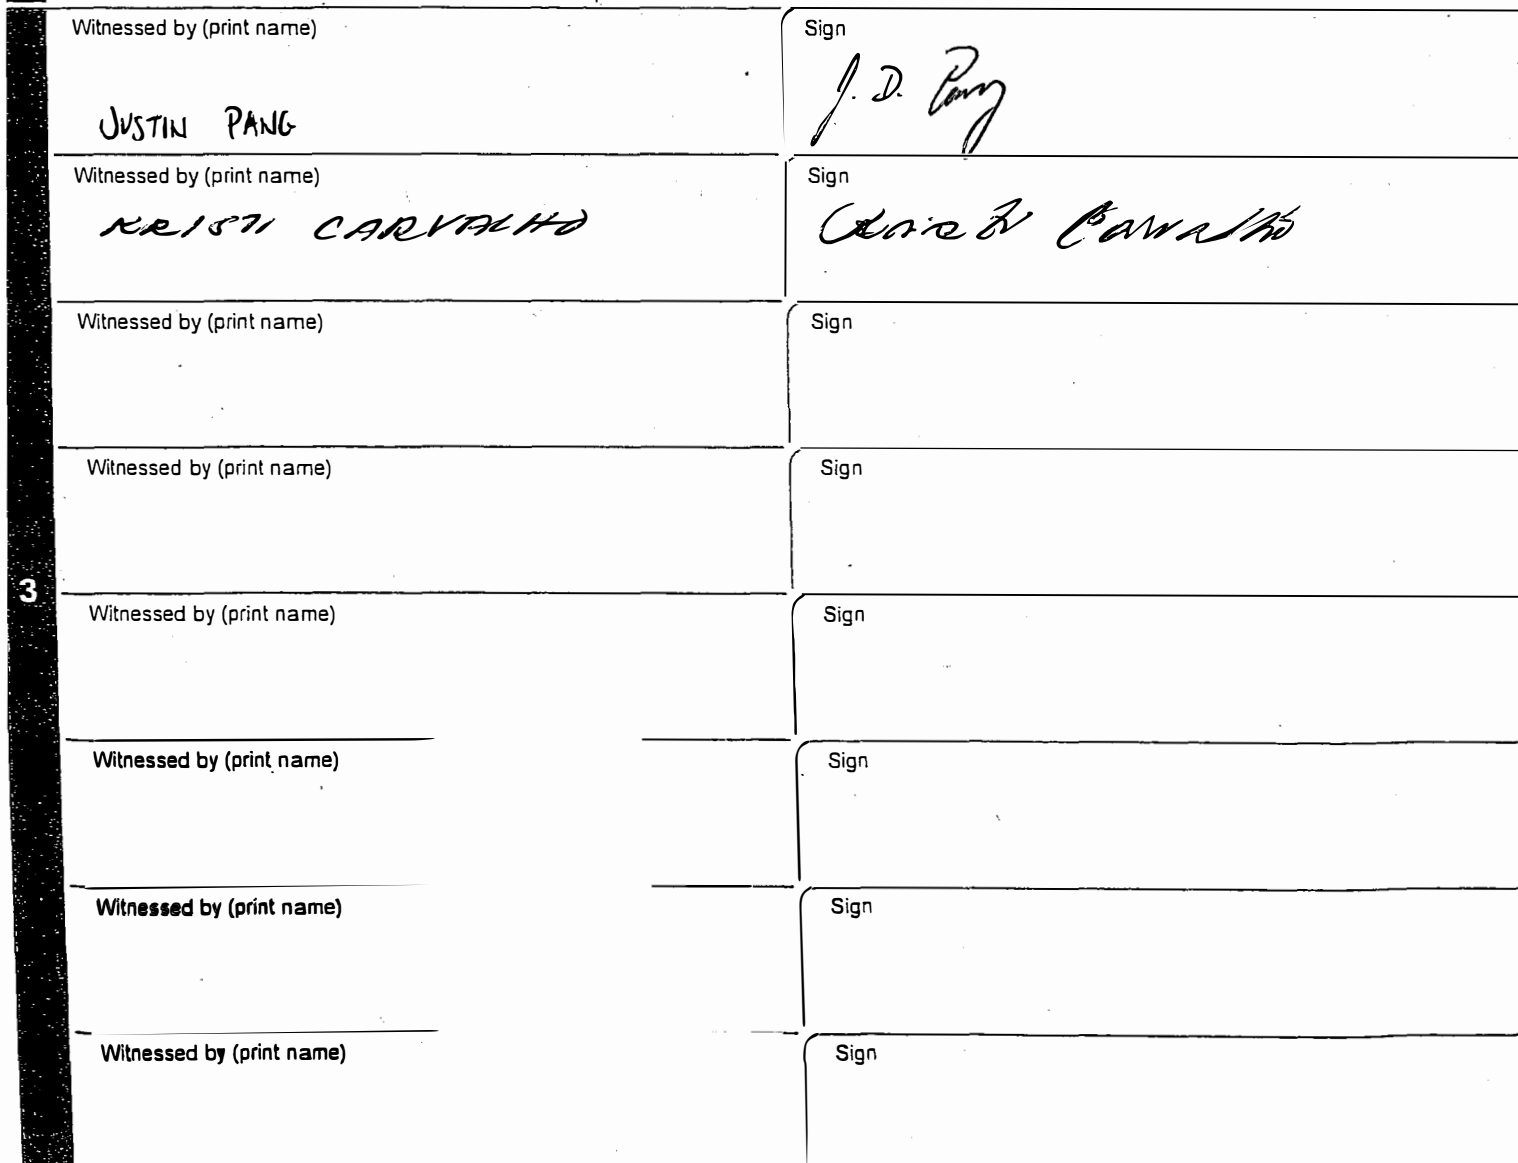 Witnessed by (print name) Sign
J. D. Pang
JUSTIN PANG
Witnessed by (print name) Sign
KRISTI CARVALHO Kristi Carvalho
Witnessed by (print name) Sign
Witnessed by (print name) Sign
3
Witnessed by (print name) Sign
Witnessed by (print name) Sign
Witnessed by (print name) Sign
Witnessed by (print name) Sign